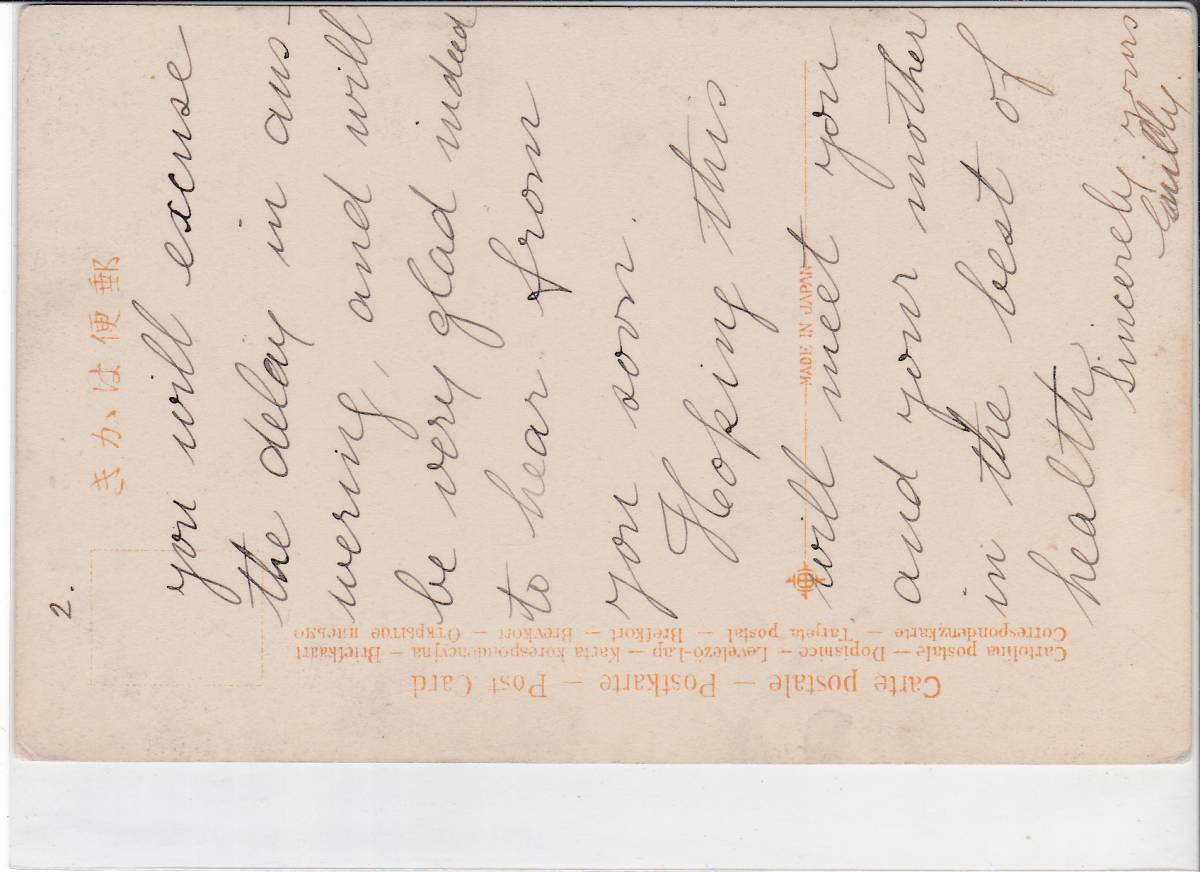 2.
you will excuse
the delay in ans-
wering, and will
be very glad indeed
to hear from
you soon.
Hoping this
will meet you
and your mother
in the best of
health
Sincerely Yours
きかは便郵
MADE IN JAPAN
Carte postale – Postkarte – Post Card
Cartolina postale – Dopisnice – Levelezö-Lap – Karta korespondencyjna – Briefkaart
Correspondenzkarte – Tarjeta postal – Brefkort – Brevkort – Открытое письмо